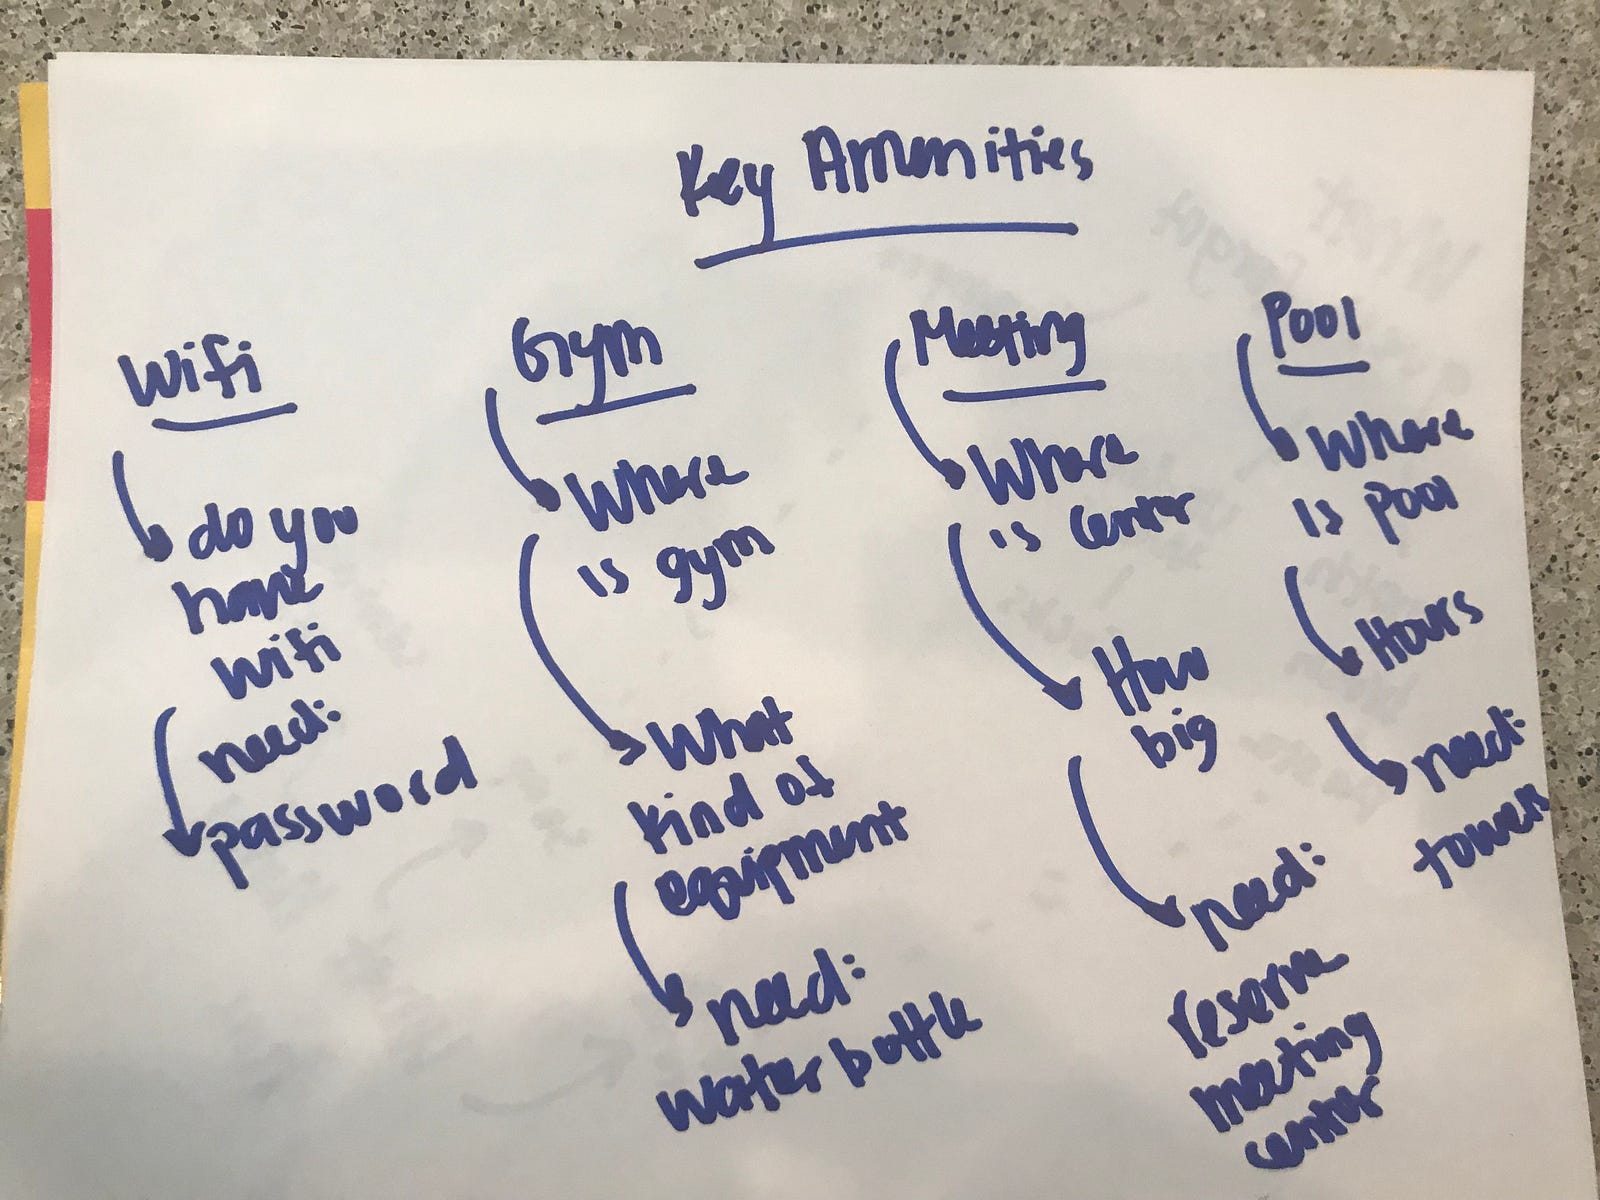 Key Amenities
Wifi
do you
have
wifi
need:
password
Gym
Where
is gym
What
kind of
equipment
need:
water bottle
Meeting
Where
is center
How
big
need:
reserve
meeting
center
Pool
Where
is pool
Hours
need:
towels